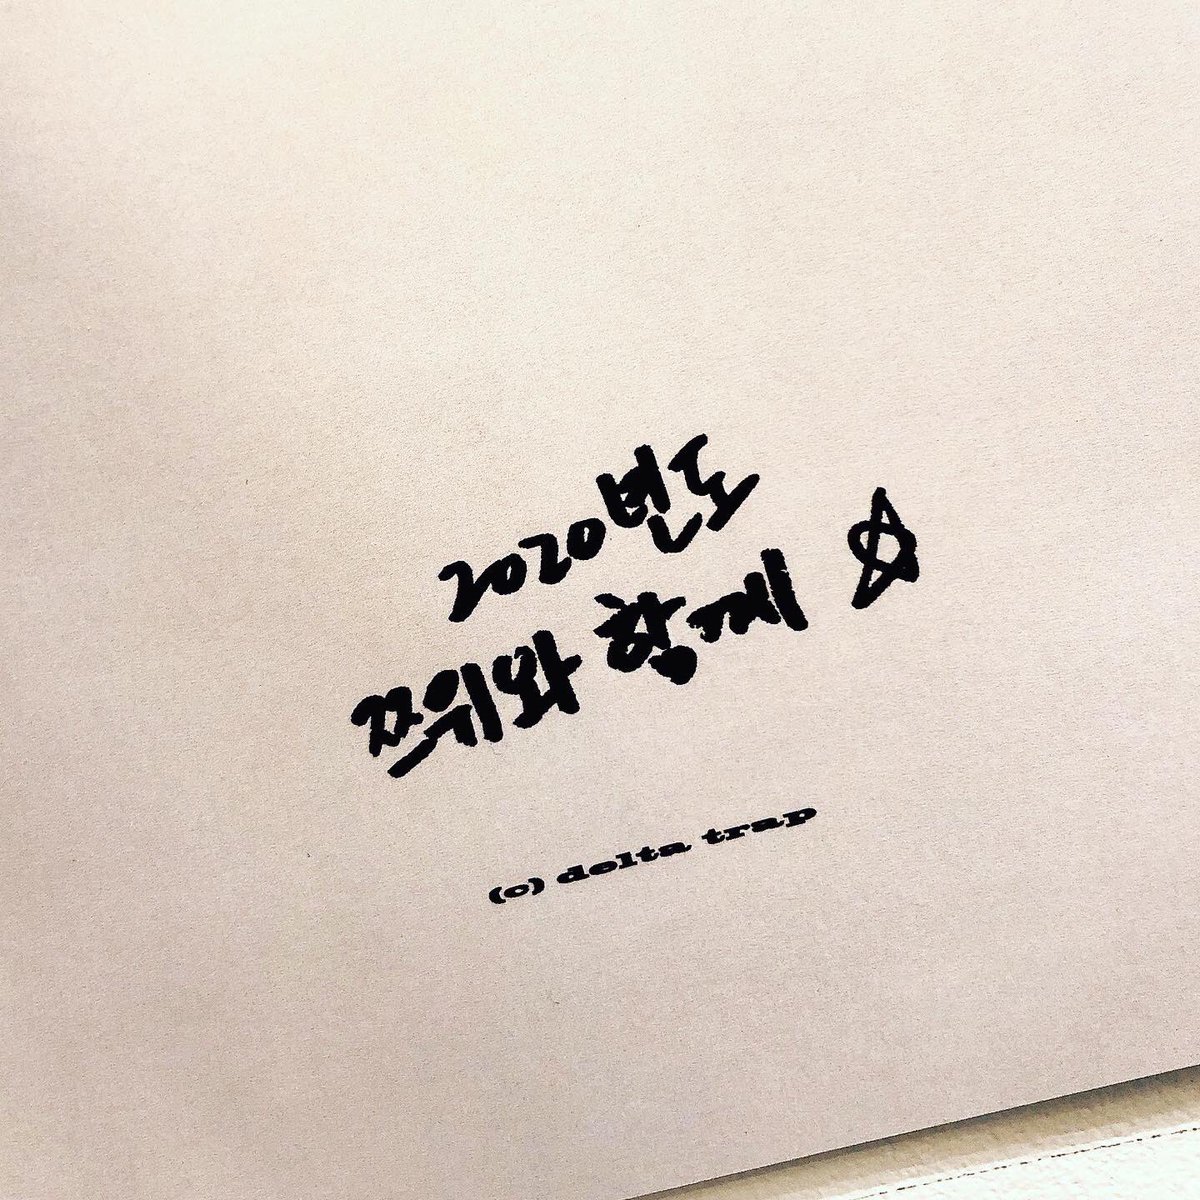 2020년도
쯔위와 함께 ☆
(c) delta trap